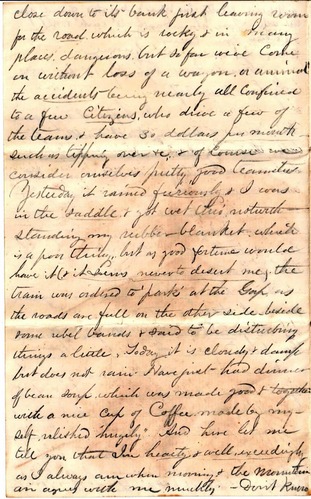 close down to its bank first leaving room
for the road, which is rocky & in many
places, dangerous, but so far we've come
on without loss of a wagon, or animal
the accidents being nearly all confined
to a few Citizens, who drive a few of
the teams & have 30 dollars per month
such as tipping over &c, & of course we
consider ourselves pretty good teamsters.
Yesterday it rained furiously & I was
in the saddle & got wet thro, notwith-
standing my rubber blanket, which
is a poor thing, but as good fortune would
have it (& it seems never to desert me) the
train was ordered to "park" at the Gap as
the roads are full on the other side, beside
some rebel bands & said to be disturbing
things a little, Today it is cloudy & damp
but does not rain. Have just had dinner
of bean soup, which was made good & together
with a nice cup of Coffee made by my-
self, relished "hugely" And here let me
tell you that I'm hearty & well, exceedingly
as I always am when moving & the Mountain
air agrees with me muchly - Don't know